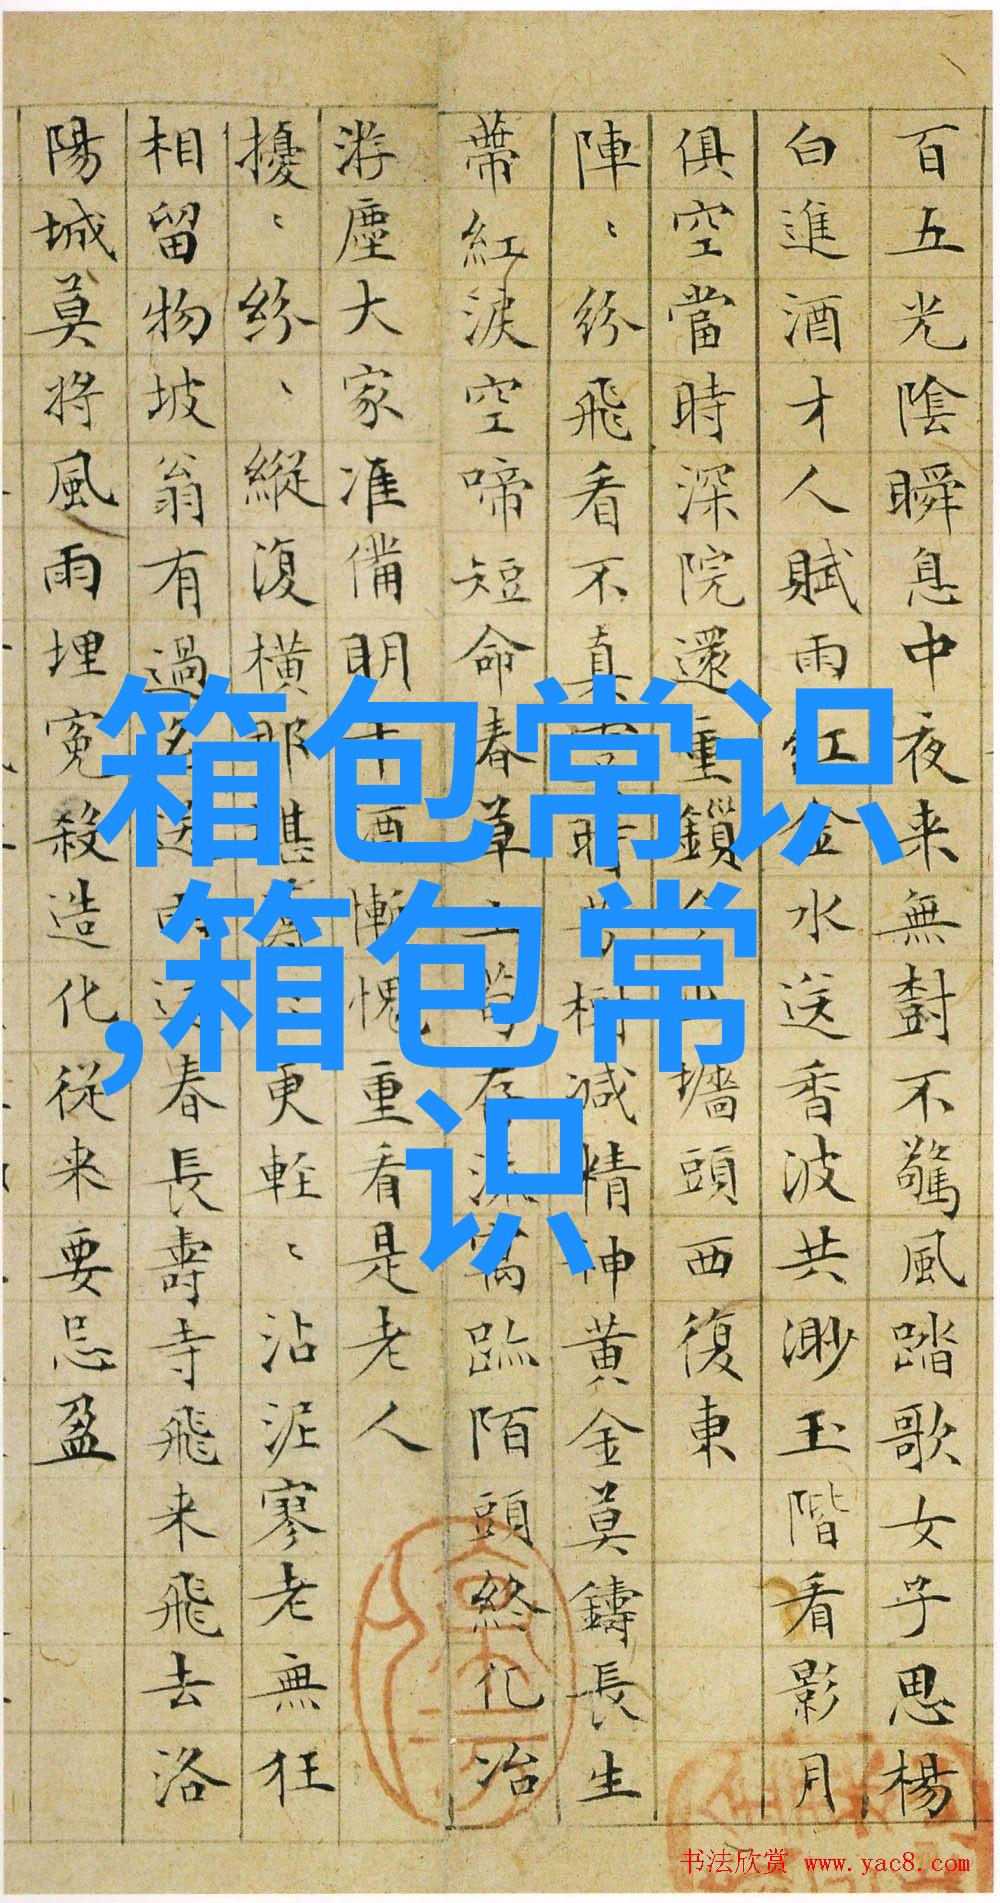 百五光陰瞬息中夜来無對不驚風踏歌女子思楊
白進酒才人賦雨紅金水送香波共渺玉階看影月
俱空當時深院還重鎖墻頭西復東
陣〻紛飛看不真減精神黄金莫鑄長生
蒂紅淚空啼短命春草存流離跡陌頭終化冶
游塵大家准備明慚愧重看是老人
擾〻紛〻縱復横那堪更輕〻沾泥寥老無狂
相留物坡翁有過春長壽寺飛来飛去洛
陽城莫将風雨埋冤殺造化從来要忌盈
箱包常识
,箱包常
识
书法欣赏 www.yac8.com